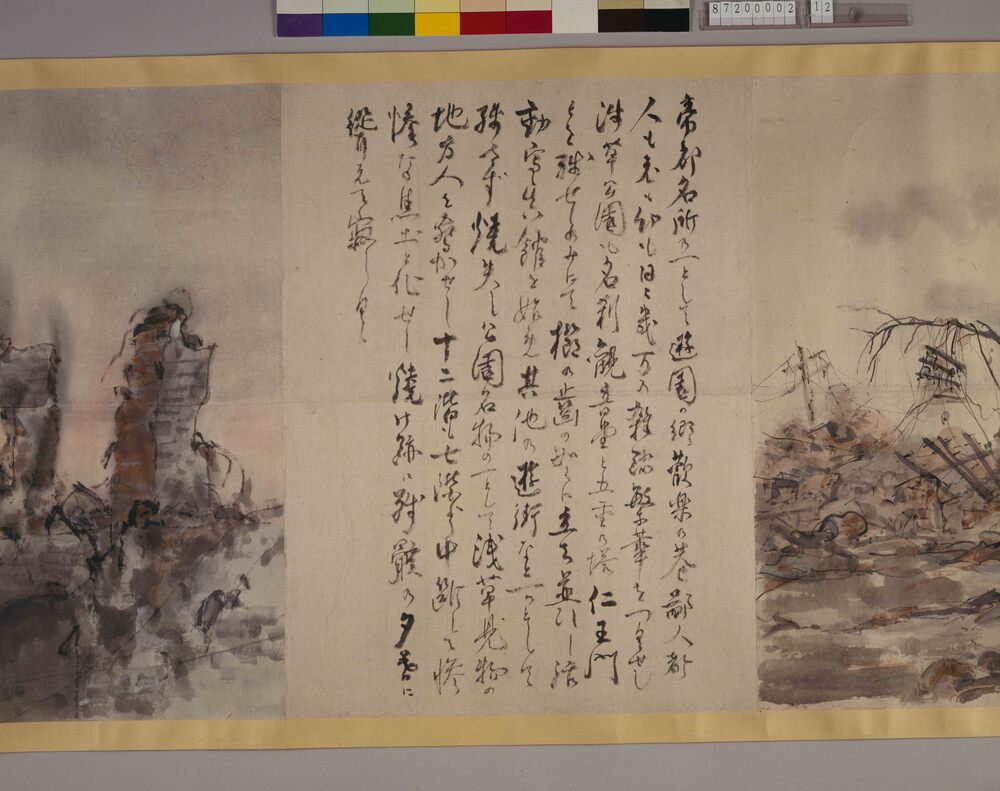 帝都名所の一として遊園の郷歓楽の巷鄙人都
人も老も幼も日に幾万の雑踏繁華をつくせし
浅草公園も名刹観音堂と五重の塔仁王門
とを残せしのみにて櫛の歯の如くに立ち並びし活
動写真館を始め其他の遊街など一つとして
残さず焼失し公園名物の一として浅草見物の
地方人を驚かせし十二階も七階より中断して惨
憺な焦土と化せし焼け跡に残骸の夕暮に
聳えて寂し
87200002
12